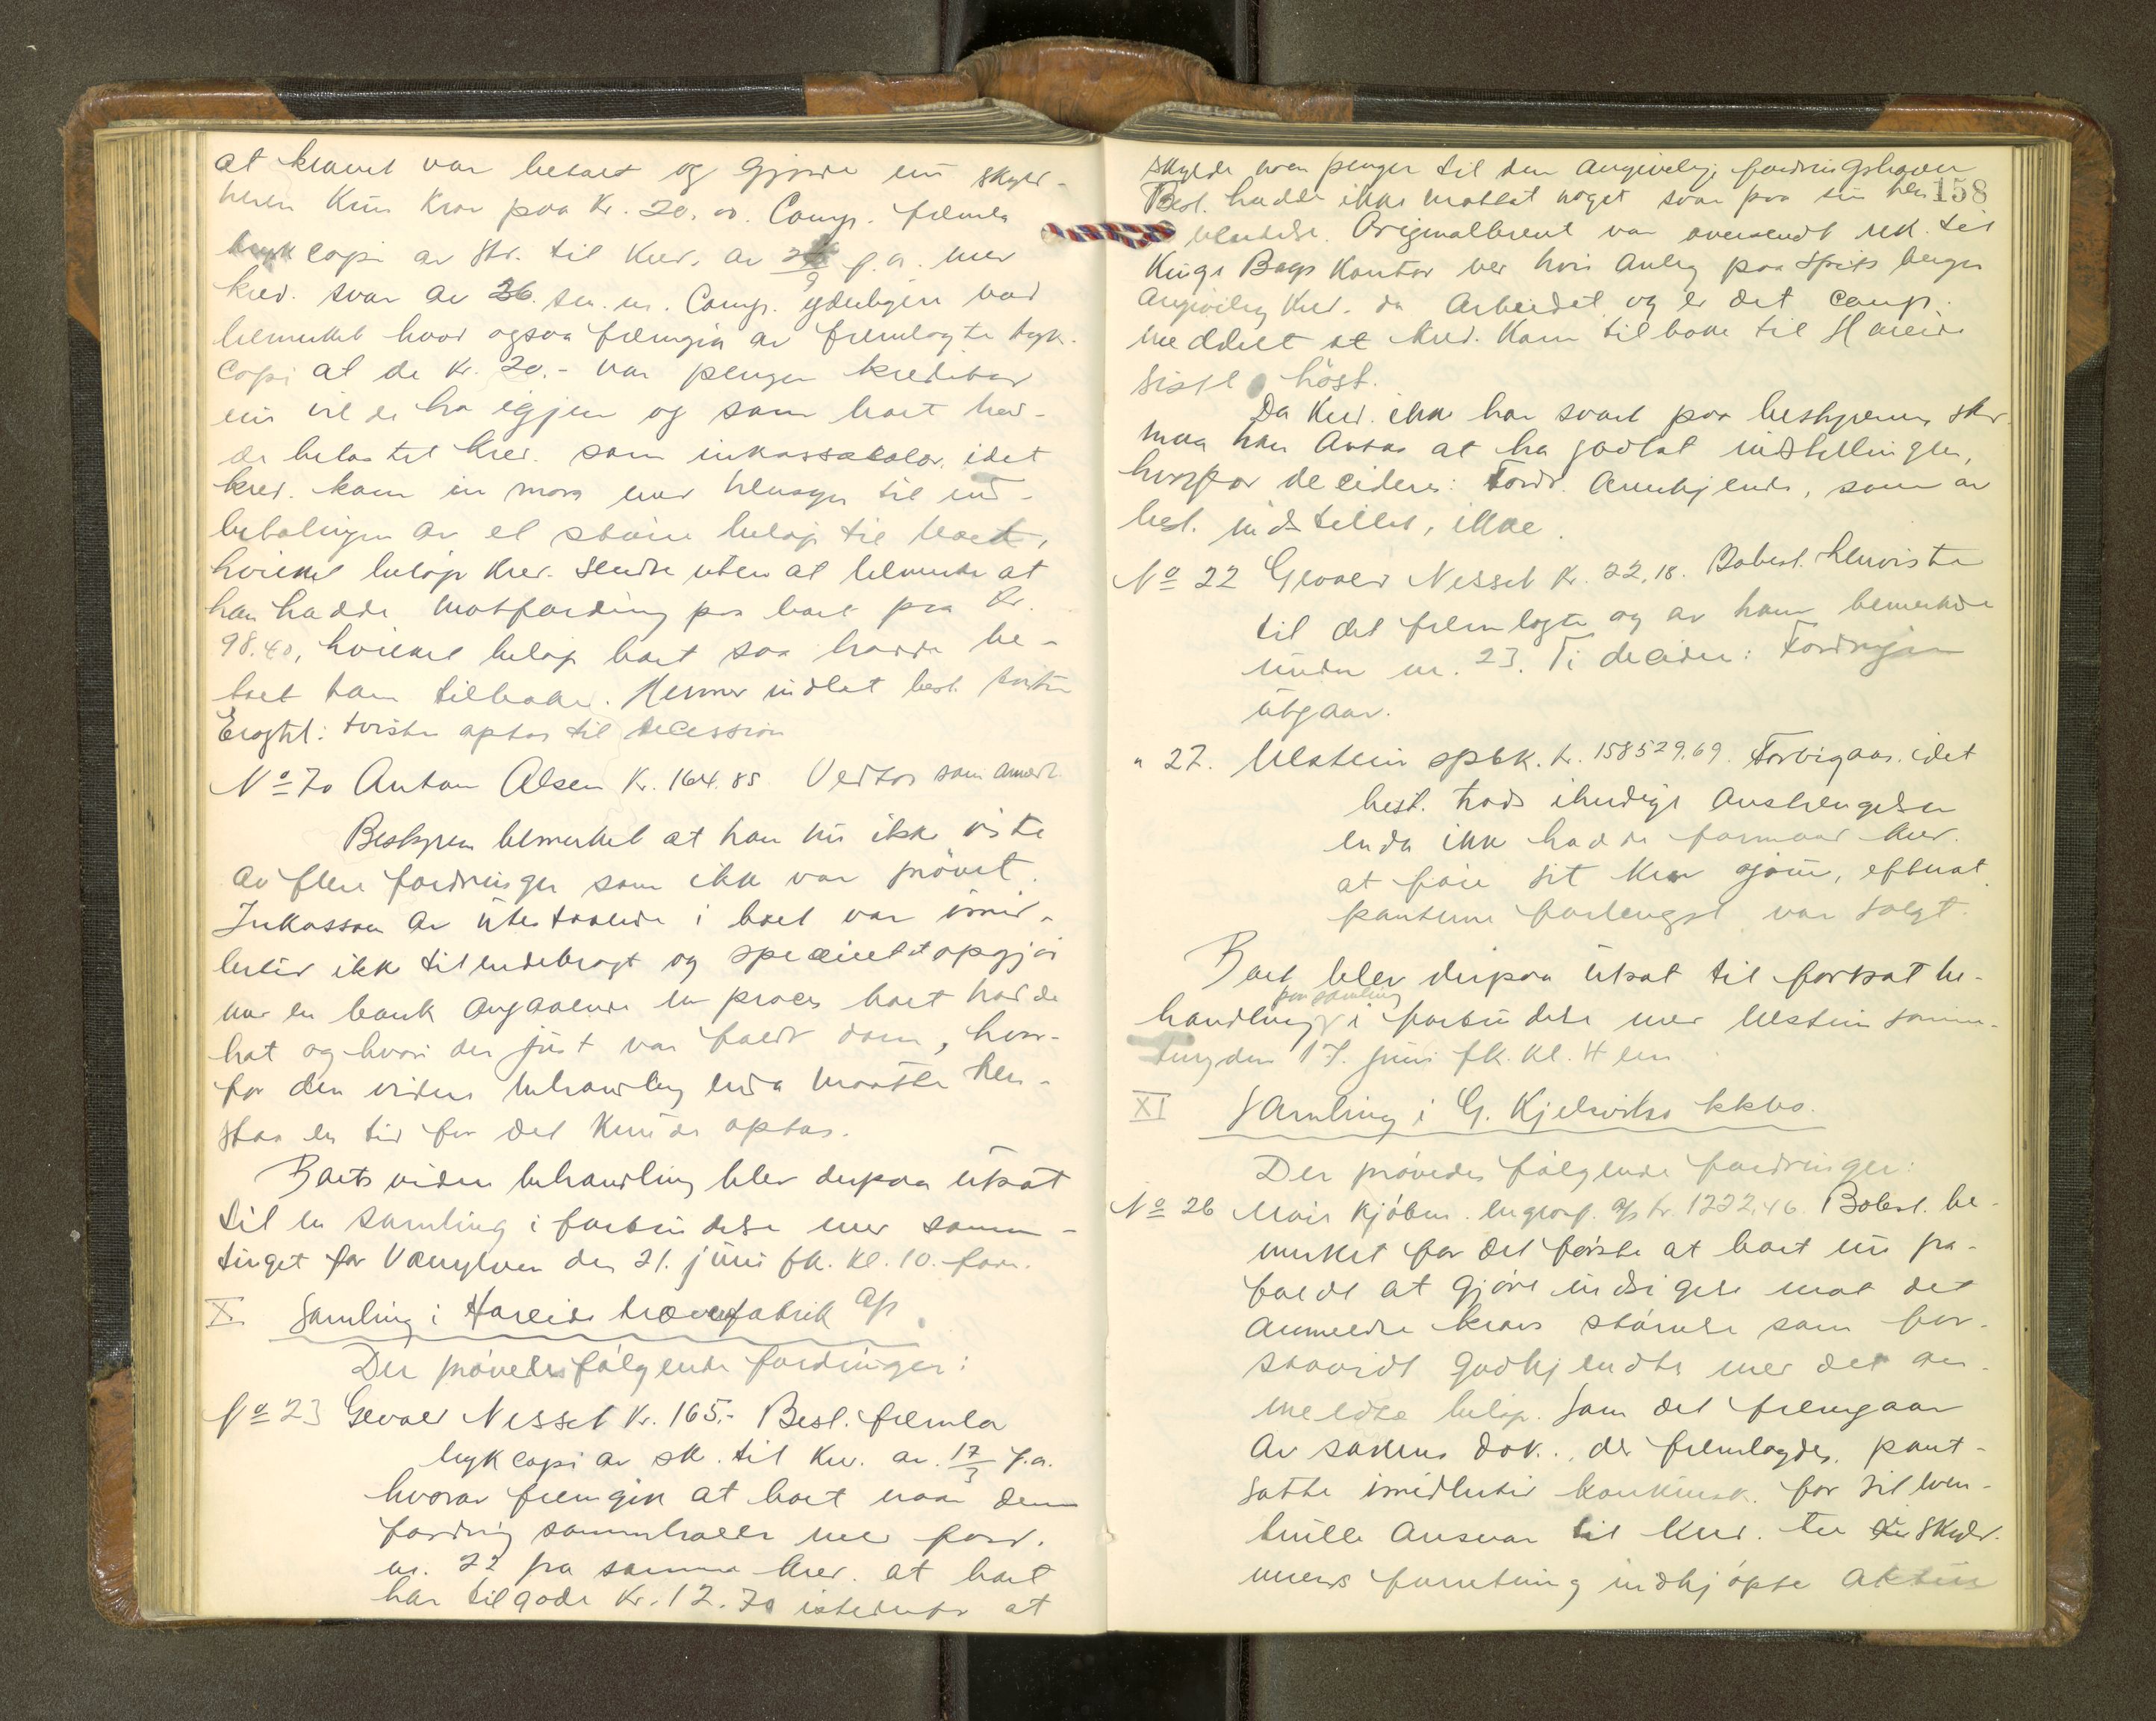 at kravet var betalt og gjorde nu skyld-
neren kun krav paa kr. 20.00. Comp. fremla
trykcopi av skr. til kred. av f.a. med
kred. svar av 26. s. m. Comp. yderligere vad
bemerket hvad ogsaa fremgik av fremlagte tryk-
copi at de kr. 20.- var penger kreditor
nu vil de ha igjen og som boet had-
de belastet kred. som inkassosalær, idet
kred. kom in mora med hensyn til ind-
betalingen av et større beløp til boet,
hvilket beløp kred. sendte uten at bemerke at
han hadde motfordring paa boet paa kr.
98.40, hvilket beløp boet saa hadde be-
talt ham tilbake. Henner indlot best. tvisten
Eragtet: tvisten optas til decession
No 70 Anton Olsen kr. 164.85 Vedtas som anerk.
Bestyreren bemerket at han nu ikke viste
av flere fordringer som ikke var prøvet.
Inkassoen av utestaaende i boet var imid-
lertid ikke tilendebragt og specielt et opgjør
med en bank angaaende en proces boet hadde
hat og hvori der just var faldt dom, hvor-
for den videre behandling enda maatte hen-
staa en tid før det kunde optas.
Boets videre behandling blev derpaa utsat
til en samling i forbindelse med somme-
tinget for Vanylven den 21. juni fk. kl. 10. form.
X Samling i Hareide trævarefabrik A/S
Der prøvedes følgende fordringer:
No 23 Gevald Nesset kr. 165.- Best. fremla
trykcopi av sk. til kr. av 17/3 f.a.
hvorav fremgik at boet naar denne
fordring sammenholdes med ford.
nr. 22 fra samme kred. at boet
har tilgode kr. 12.70 istedenfor at
158
skylde noen penger til den angivelige fordringshaver
Best. hadde ikke mottat noget svar paa sin hen-
vendelse. Originalbrevet var oversendt rek. til
Kings Bays kontor ved hvis anleg paa Spitsbergen
angivelig kred. da arbeidet og er det comp.
meddelt at kred. kom tilbake til Hareid
sistl. høst.
Da kred. ikke har svart paa bestyrerens skr.
maa han antas at ha godtat indstillingen,
hvorfor decideres: Fordr. anerkjendes, som av
best. indstillet, ikke.
No 22 Gevald Nesset kr. 22,18. Bobest. henviste
til det fremlagte og av ham bemerkede
under nr. 23. Ti decideres: Fordringen
utgaar.
" 27. Ulstein spbk. kr. 158529,69. Forbigaas. idet
best. trods iherdige anstrengelser
enda ikke hadde formaad kred.
at føre sit krav gjøre, efterat
panterne forlengst var solgt.
Boet blev derpaa utsat til fortsat be-
handling paa samling i forbindelse med Ulstein somme-
ting den 17. juni fk. kl. 4 em
XI Samling i G. Kjelsviks kkbo.
Der prøvedes følgende fordringer:
No 26 Møre kjøbm. engrosf. A/S kr. 1222,46. Bobest. be-
merket for det første at boet nu fra-
faldt at gjøre indsigelse mot det
anmeldte kravs størrelse som for-
saavidt godkjendtes med det an-
meldte beløp. Som det fremgaar
av sakens dok., der fremlagdes, pant-
satte imidlertid konkurssk. for sit even-
tuelle ansvar til kred. skyld-
neren forretning indkjøpte aktier